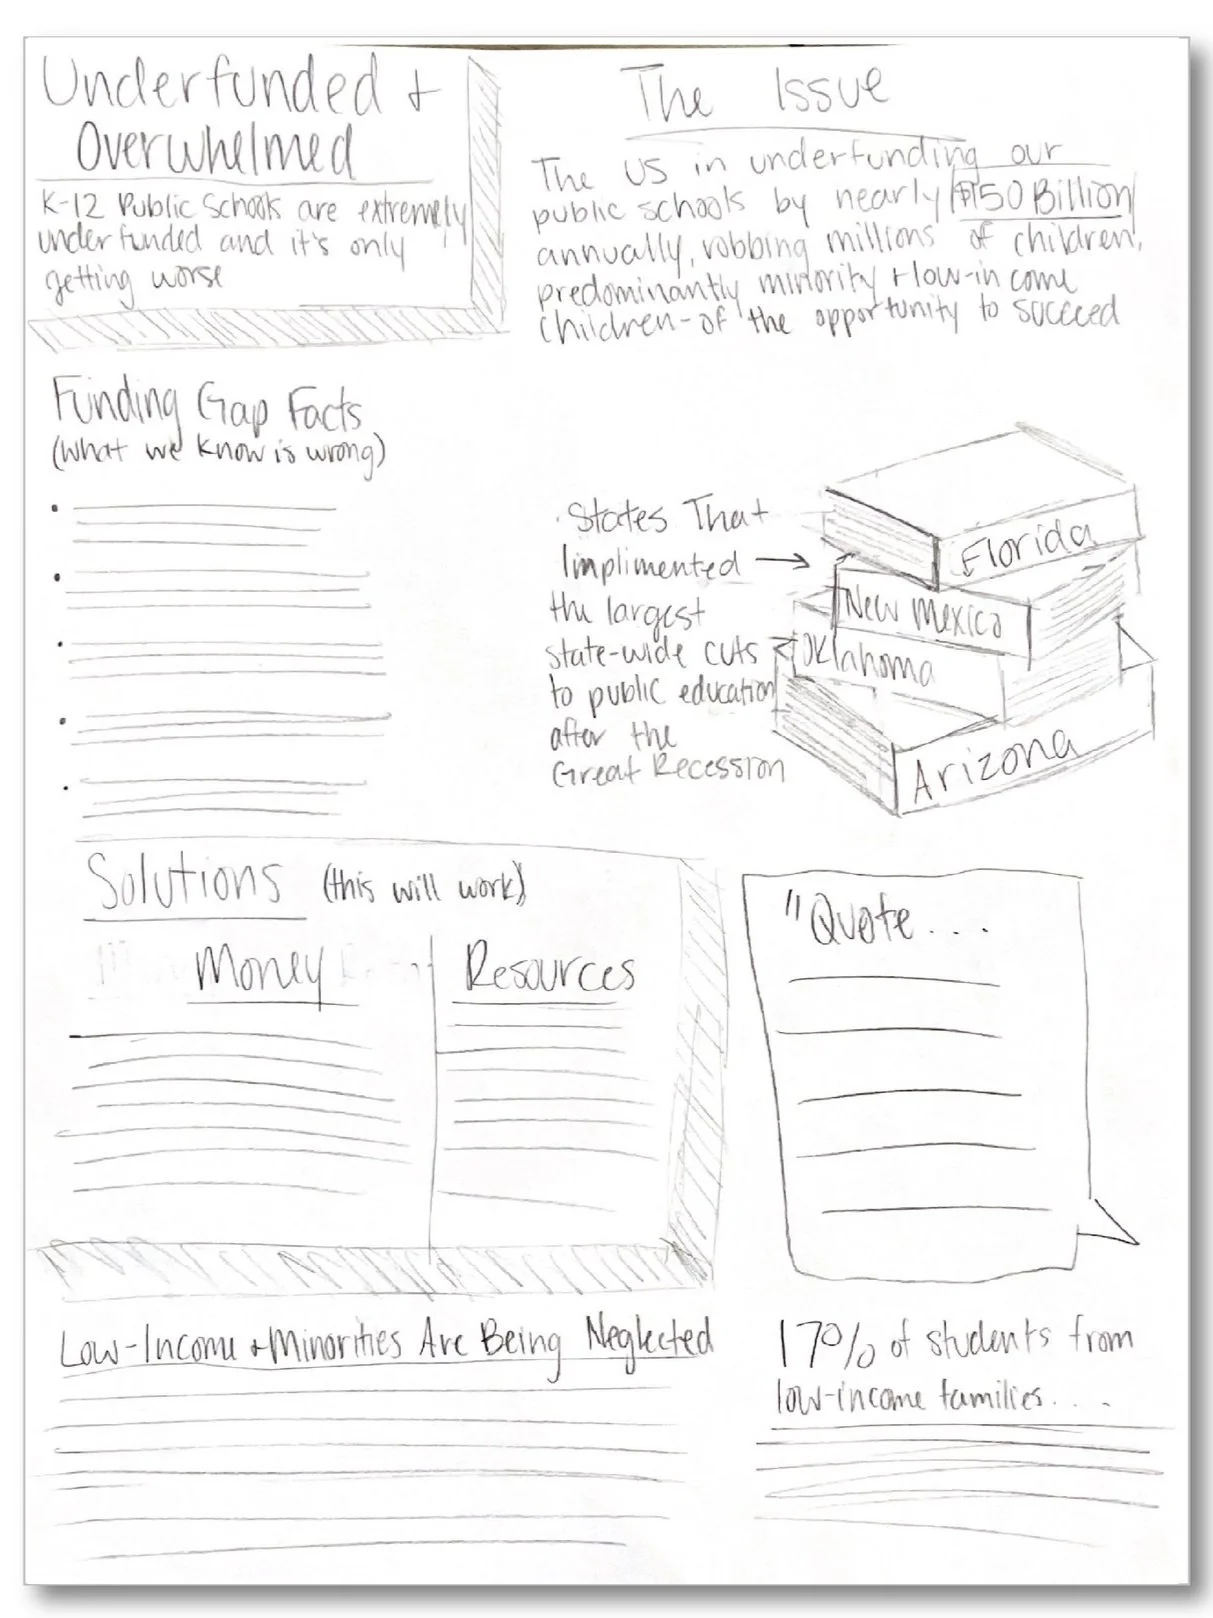 Underfunded +
Overwhelmed
K-12 Public Schools are extremely
underfunded and it's only
getting worse
The Issue
The US in underfunding our
public schools by nearly $150 Billion
annually, robbing millions of children,
predominantly minority + low-income
children-of the opportunity to succeed
Funding Gap Facts
(What we know is wrong)
States That
Implimented
the largest
state-wide cuts
to public education
after the
Great Recession
Florida
New Mexico
Oklahoma
Arizona
Solutions (this will work)
Money
Resources
"Quote....
Low-Income + Minorities Are Being Neglected
17% of students from
low-income families....